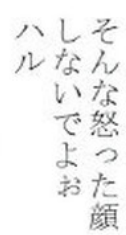 そんな怒った顔
しないでよぉ
ハル